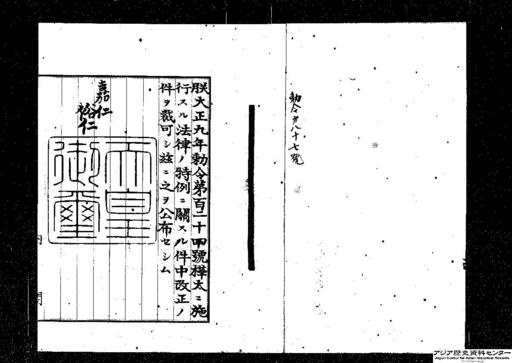 勅令第八十七號
朕大正九年勅令第百二十四號樺太ニ施
行スル法律ノ特例ニ關スル件中改正ノ
件ヲ裁可シ玆ニ之ヲ公布セシム
嘉仁
裕仁
天皇
御璽
アジア歴史資料センター
Japan Center for Asian Historical Records